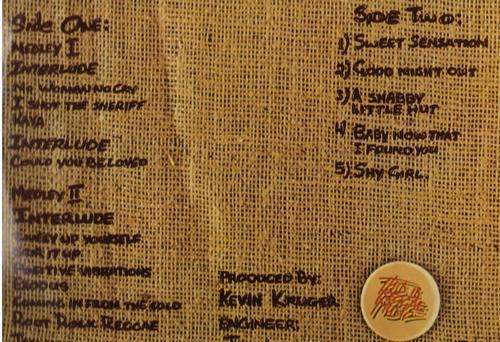 Side One:
Medley I
Interlude
No Woman no Cry
I Shot the Sheriff
Kaya
Interlude
Could you be loved
Medley II
Interlude
Lively up yourself
Stir it up
Positive Vibrations
Exodus
Coming in from the cold
Root Rock Reggae
Side Two:
1) Sweet Sensation
2) Good night out
3) A shabby
little hut
4 Baby now that
I found you
5) Shy Girl.
Produced By:
Kevin Kruger
Engineer: